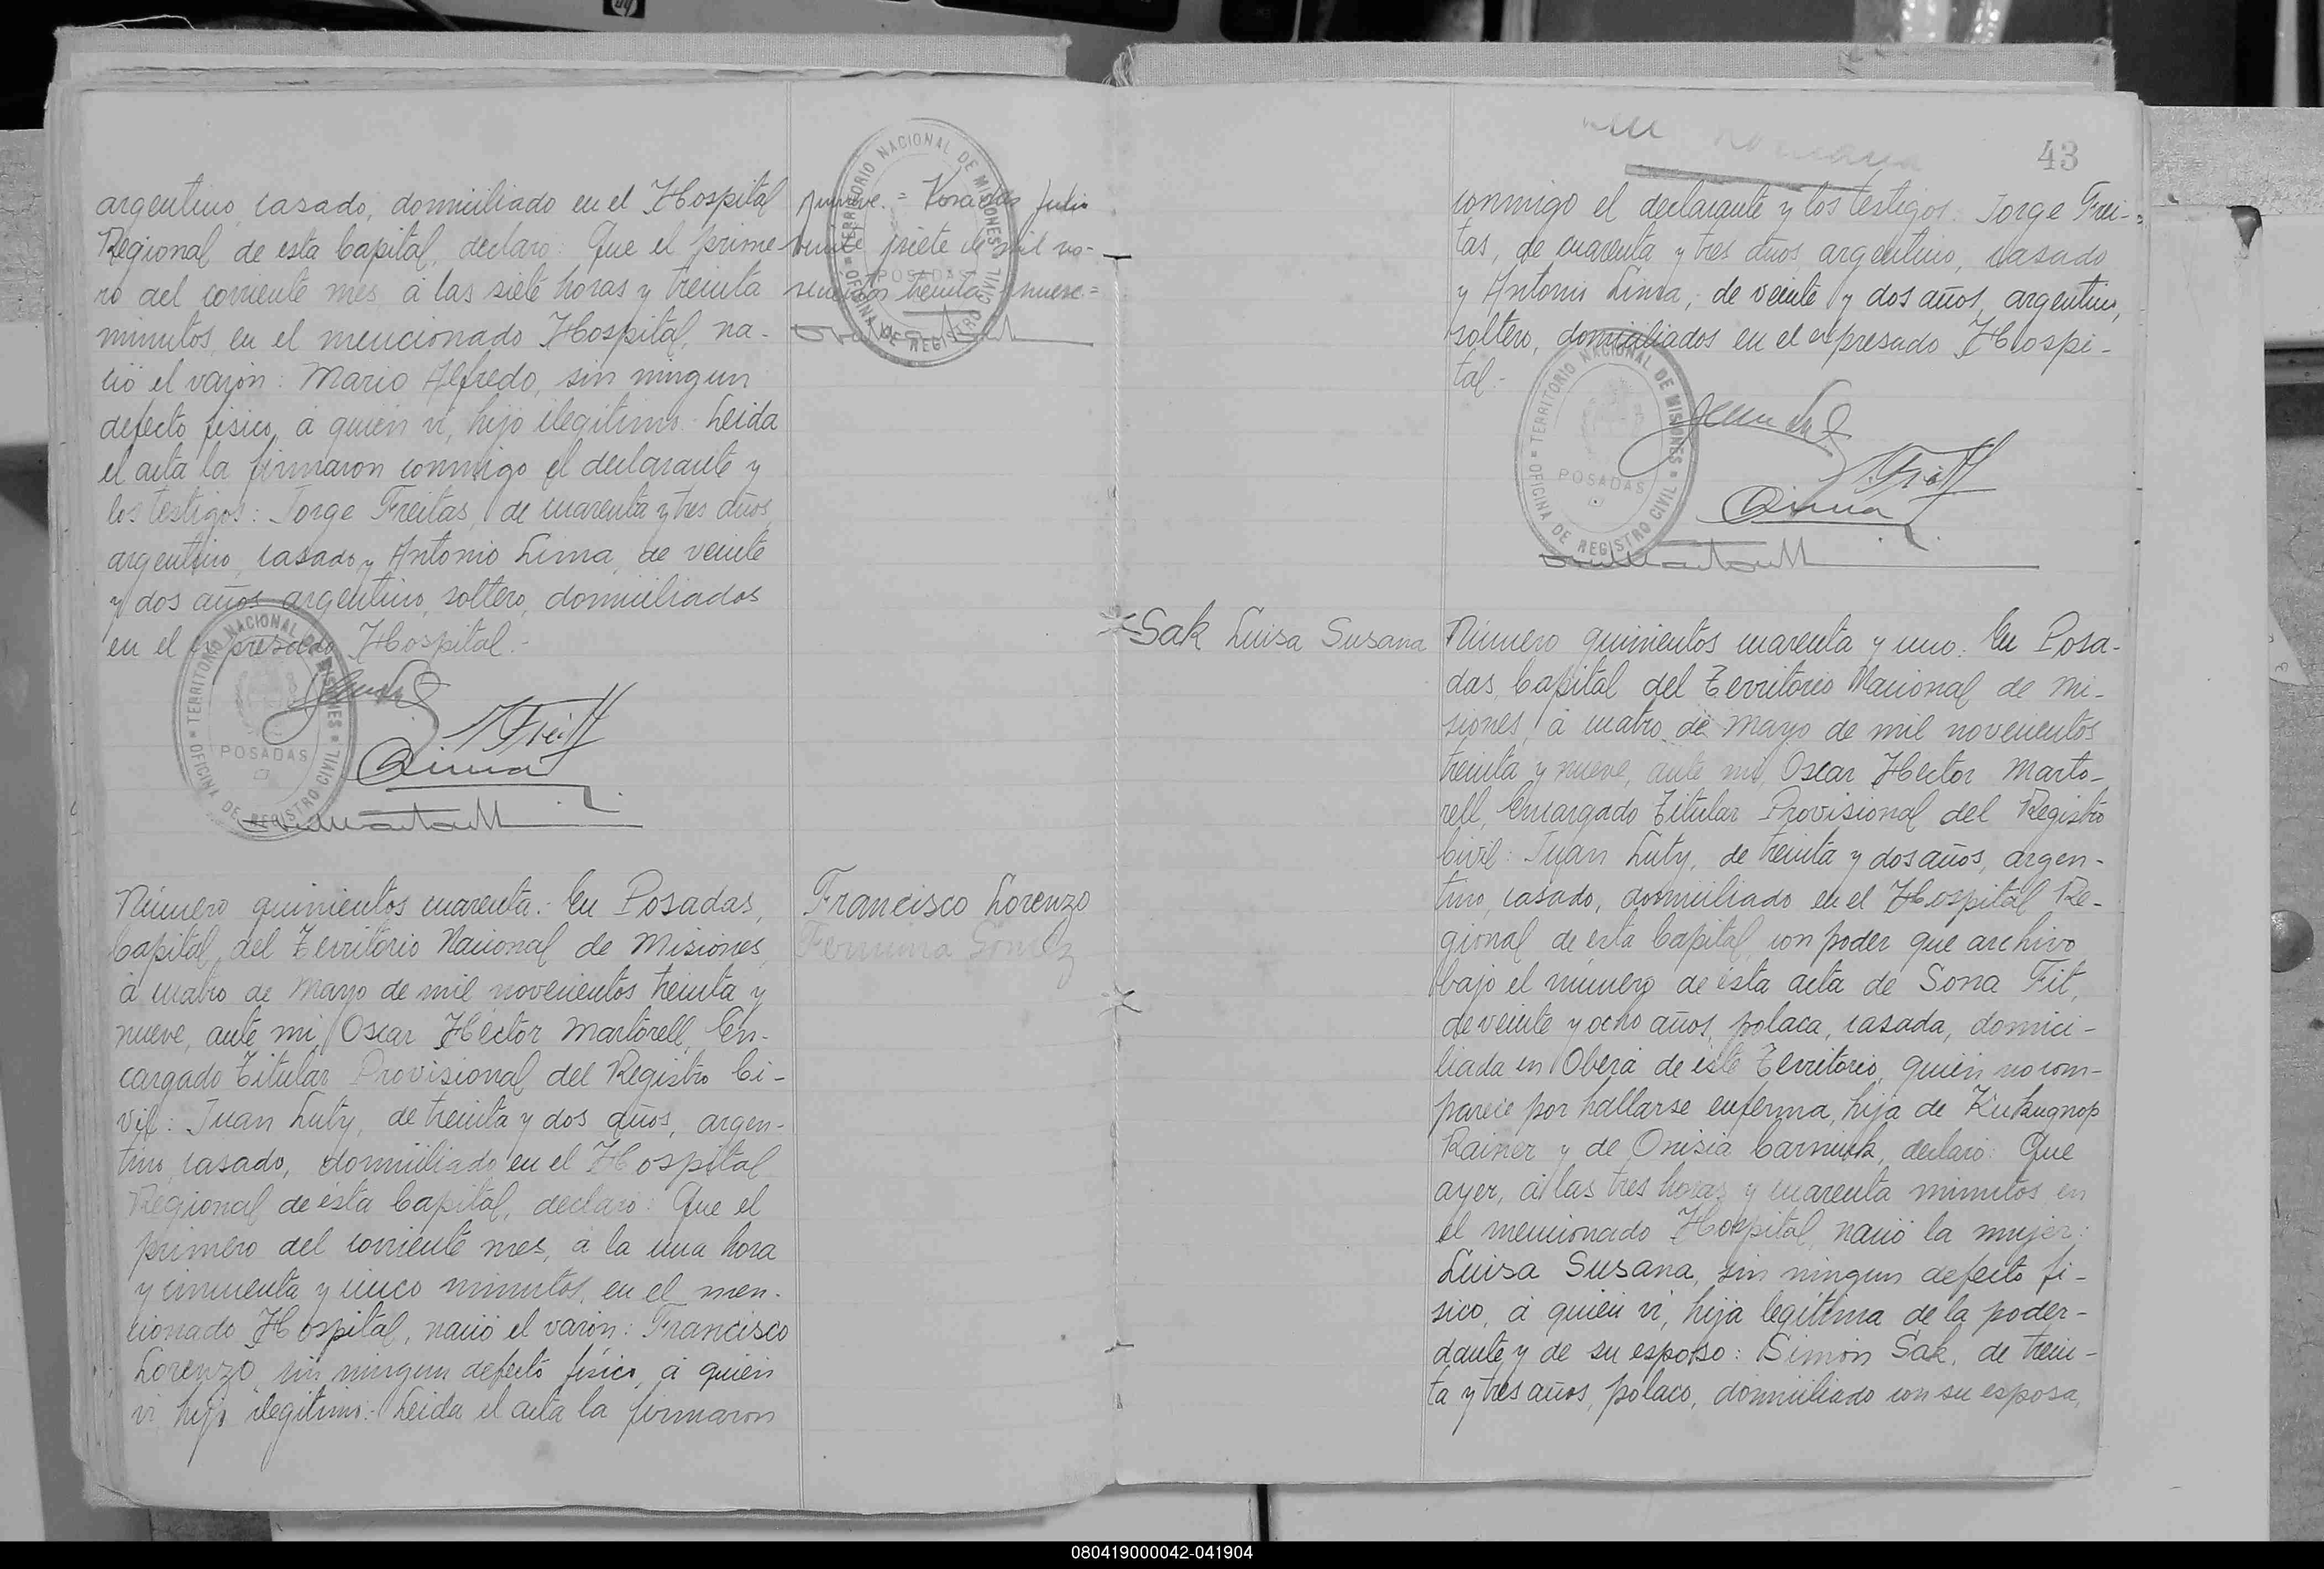 argentino, casado, domiciliado en el Hospital
Regional de esta Capital, declaró: Que el prime-
ro del corriente mes á las siete horas y treinta
minutos, en el mencionado Hospital, na-
ció el varón: Mario Alfredo, sin ningun
defecto físico, á quien ví, hijo ilegítimo. Leida
el acta la firmaron conmigo el declarante y
los testigos: Jorge Freitas, de cuarenta y tres años
argentino, casado y Antonio Lima, de veinte
y dos años argentino, soltero, domiciliados
en el expresado Hospital.-
TERRITORIO NACIONAL DE MISIONES
POSADAS
OFICINA DE REGISTRO CIVIL
Número quinientos cuarenta: En Posadas,
Capital, del Territorio Nacional de Misiones,
á cuatro de Mayo de mil novecientos treinta y
nueve, ante mí, Oscar Héctor Martorell, En-
cargado Titular Provisional del Registro Ci-
vil: Juan Luty, de treinta y dos años, argen-
tino, casado, domiciliado en el Hospital
Regional de ésta Capital, declaró: Que el
primero del corriente mes, á la una hora
y cincuenta y cinco minutos, en el men-
cionado Hospital, nació el varón: Francisco
Lorenzo, sin ningun defecto físico, á quien
ví, hijo ilegítimo: Leida el acta la firmaron
nueve.= Posadas Julio
veinte siete de mil no-
vecientos treinta nueve=
TERRITORIO NACIONAL DE MISIONES
POSADAS
OFICINA DE REGISTRO CIVIL
Francisco Lorenzo
43
conmigo el declarante y los testigos: Jorge Frei-
tas, de cuarenta y tres años argentino, casado
y Antonio Lima, de veinte y dos años, argentino,
soltero, domiciliados en el expresado Hospi-
tal.-
TERRITORIO NACIONAL DE MISIONES
POSADAS
OFICINA DE REGISTRO CIVIL
Sak Luisa Susana
Número quinientos cuarenta y uno: En Posa-
das, Capital del Territorio Nacional de Mi-
siones, á cuatro de Mayo de mil novecientos
treinta y nueve, ante mí, Oscar Héctor Marto-
rell, Encargado Titular Provisional del Registro
Civil: Juan Luty, de treinta y dos años, argen-
tino, casado, domiciliado en el Hospital Re-
gional de esta Capital, con poder que archivo
bajo el número de ésta acta de Sona Fit,
de veinte y ocho años, polaca, casada, domici-
liada en Oberá de éste Territorio, quién no com-
parece por hallarse enferma, hija de
Rainer y de Onisia Carniuk, declaró: Que
ayer, á las tres horas y cuarenta minutos en
el mencionado Hospital, nació la mujer:
Luisa Susana, sin ningun defecto fí-
sico, á quien ví, hija legítima de la poder-
dante y de su esposo: Simón Sak, de trein-
ta y tres años, polaco, domiciliado con su esposa,
080419000042-041904